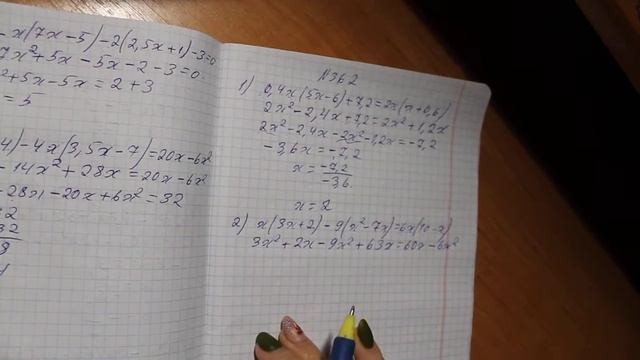 - x(7x-5)-2(2,5x+1)-3=0
7x²+5x-5x-2-3=0
²+5x-5x=2+3
=5
4)-4x(3,5x-7)=20x-6x²
-14x²+28x=20x-6x²
-28x-20x+6x²=32
N362
1) 0,4x(5x-6)+7,2=2x(x+0,6)
2x²-2,4x+7,2=2x²+1,2x
2x²-2,4x-2x²-1,2x=-7,2
-3,6x=-7,2
x=-7,2
-3,6.
x=2
2) x(3x+2)-9(x²-7x)=6x(10-x)
3x²+2x-9x²+63x=60x-6x²